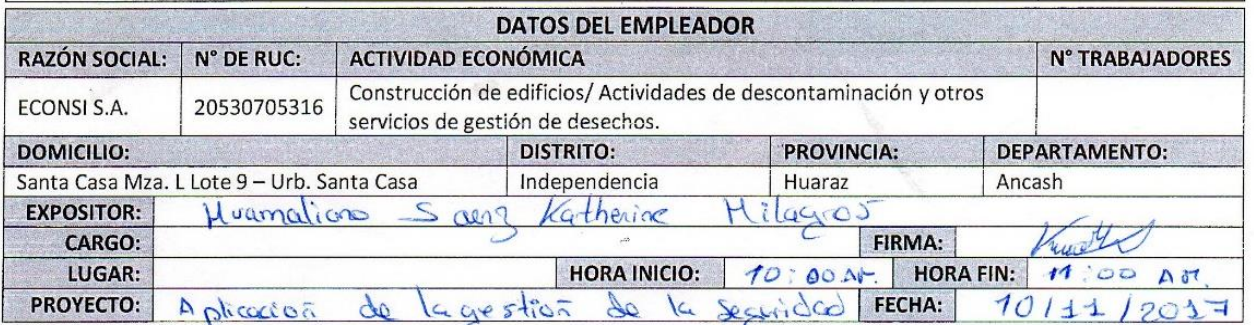 DATOS DEL EMPLEADOR
RAZÓN SOCIAL: N° DE RUC: ACTIVIDAD ECONÓMICA N° TRABAJADORES
ECONSI S.A. 20530705316 Construcción de edificios/ Actividades de descontaminación y otros
servicios de gestión de desechos.
DOMICILIO: DISTRITO: PROVINCIA: DEPARTAMENTO:
Santa Casa Mza. L Lote 9 – Urb. Santa Casa Independencia Huaraz Ancash
EXPOSITOR: Huamaliano Saenz Katherine Milagros
CARGO: FIRMA:
LUGAR: HORA INICIO: 10:00 AM. HORA FIN: 11:00 AM.
PROYECTO: Aplicación de la gestión de la seguridad FECHA: 10/11/2017